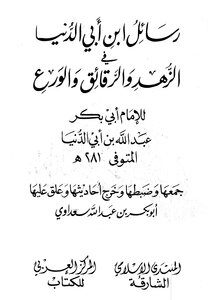 رسائل ابن أبي الدنيا
في
الزهد والرقائق والورع
للإمام أبي بكر
عبد الله بن أبي الدنيا
المتوفى ٢٨١ هـ
جمعها وضبطها وخرج أحاديثها وعلق عليها
أبو بكر بن عبد الله سعداوي
المنتدى الإسلامي المركز العربي
الشارقة للكتاب